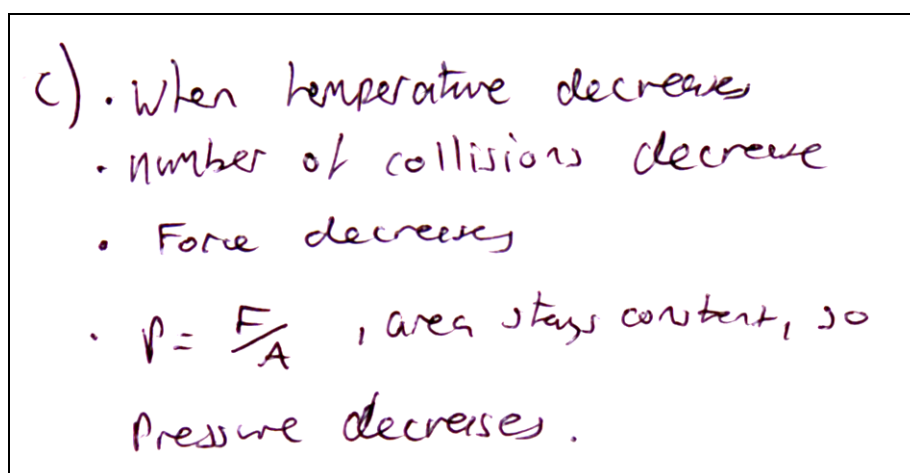 c) . When temperature decreases
. number of collisions decrease
. Force decreases
. P = F/A , area stays constant, so
Pressure decreases.